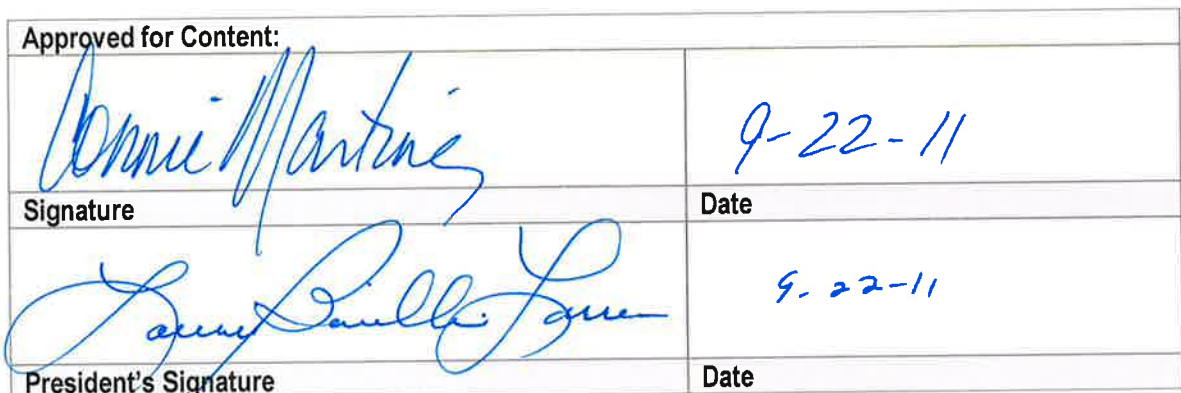 Approved for Content:
Connie Martinez 9-22-11
Signature Date
9-22-11
President's Signature Date